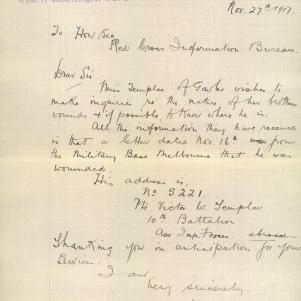 Nov. 27th 1917.
To Hon Sec
Red Cross Information Bureau.
Dear Sir
Miss Templar of Gawler wishes to
make inquirie re the nature of her brothers
wounds. & if possible, to know where he is.
All the information they have received
is that a letter dated Nov. 16th from
the Military Base Melbourne that he was
wounded.
His address is.
No 5221.
Pte Victor W. Templar
10th Battalion
Aus Imp. Forces. abroad
Thanking you in anticipation for your
Service.
I am
Very sincerely.